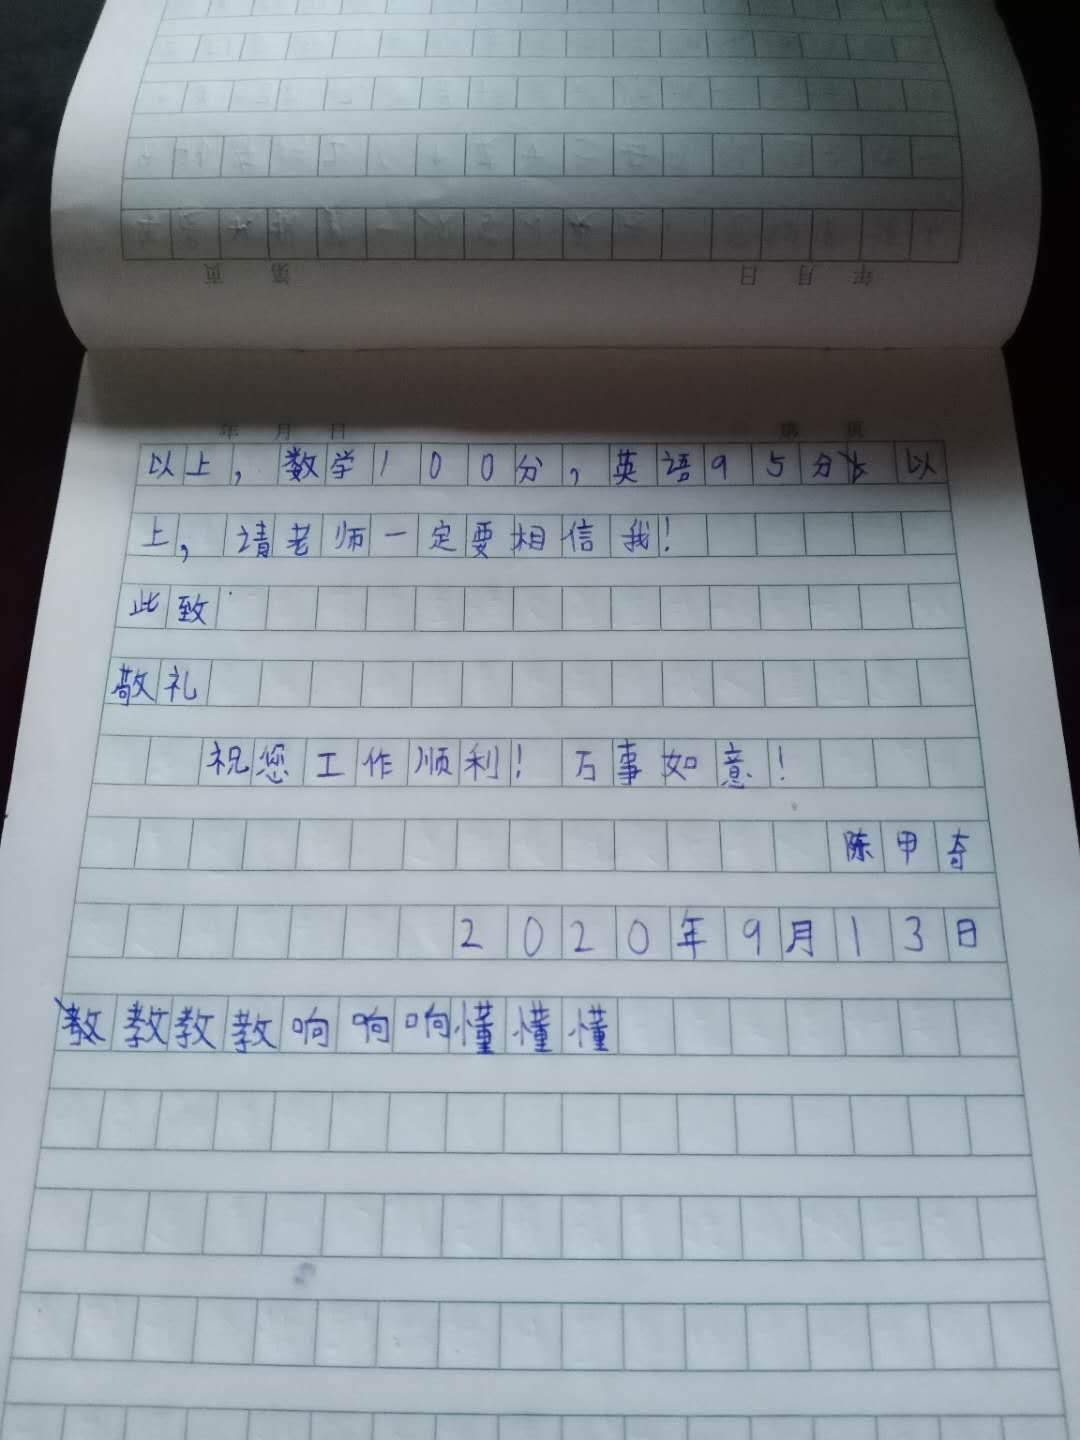 第 页 年 月 日
年 月 日 第 页
以上，数学100分，英语95分 以
上，请老师一定要相信我！
此致
敬礼
祝您工作顺利！万事如意！
陈甲奇
2020年9月13日
教教教教响响响懂懂懂